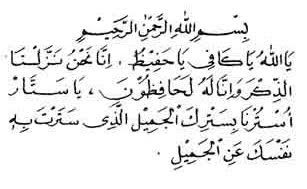 بِسْمِ اللهِ الرَّحْمٰنِ الرَّحِيْمِ
يَا اللهُ يَا كَافِي يَا حَفِيْظُ . اِنَّا نَحْنُ نَزَّلْنَا
الذِّكْرَ وَاِنَّا لَهُ لَحَافِظُوْنَ ، يَا سَتَّارُ
اُسْتُرْنَا بِسَتْرِكَ الْجَمِيْلِ الَّذِى سَتَرْتَ بِهِ
نَفْسَكَ عَنِ الْجَمِيْلِ .